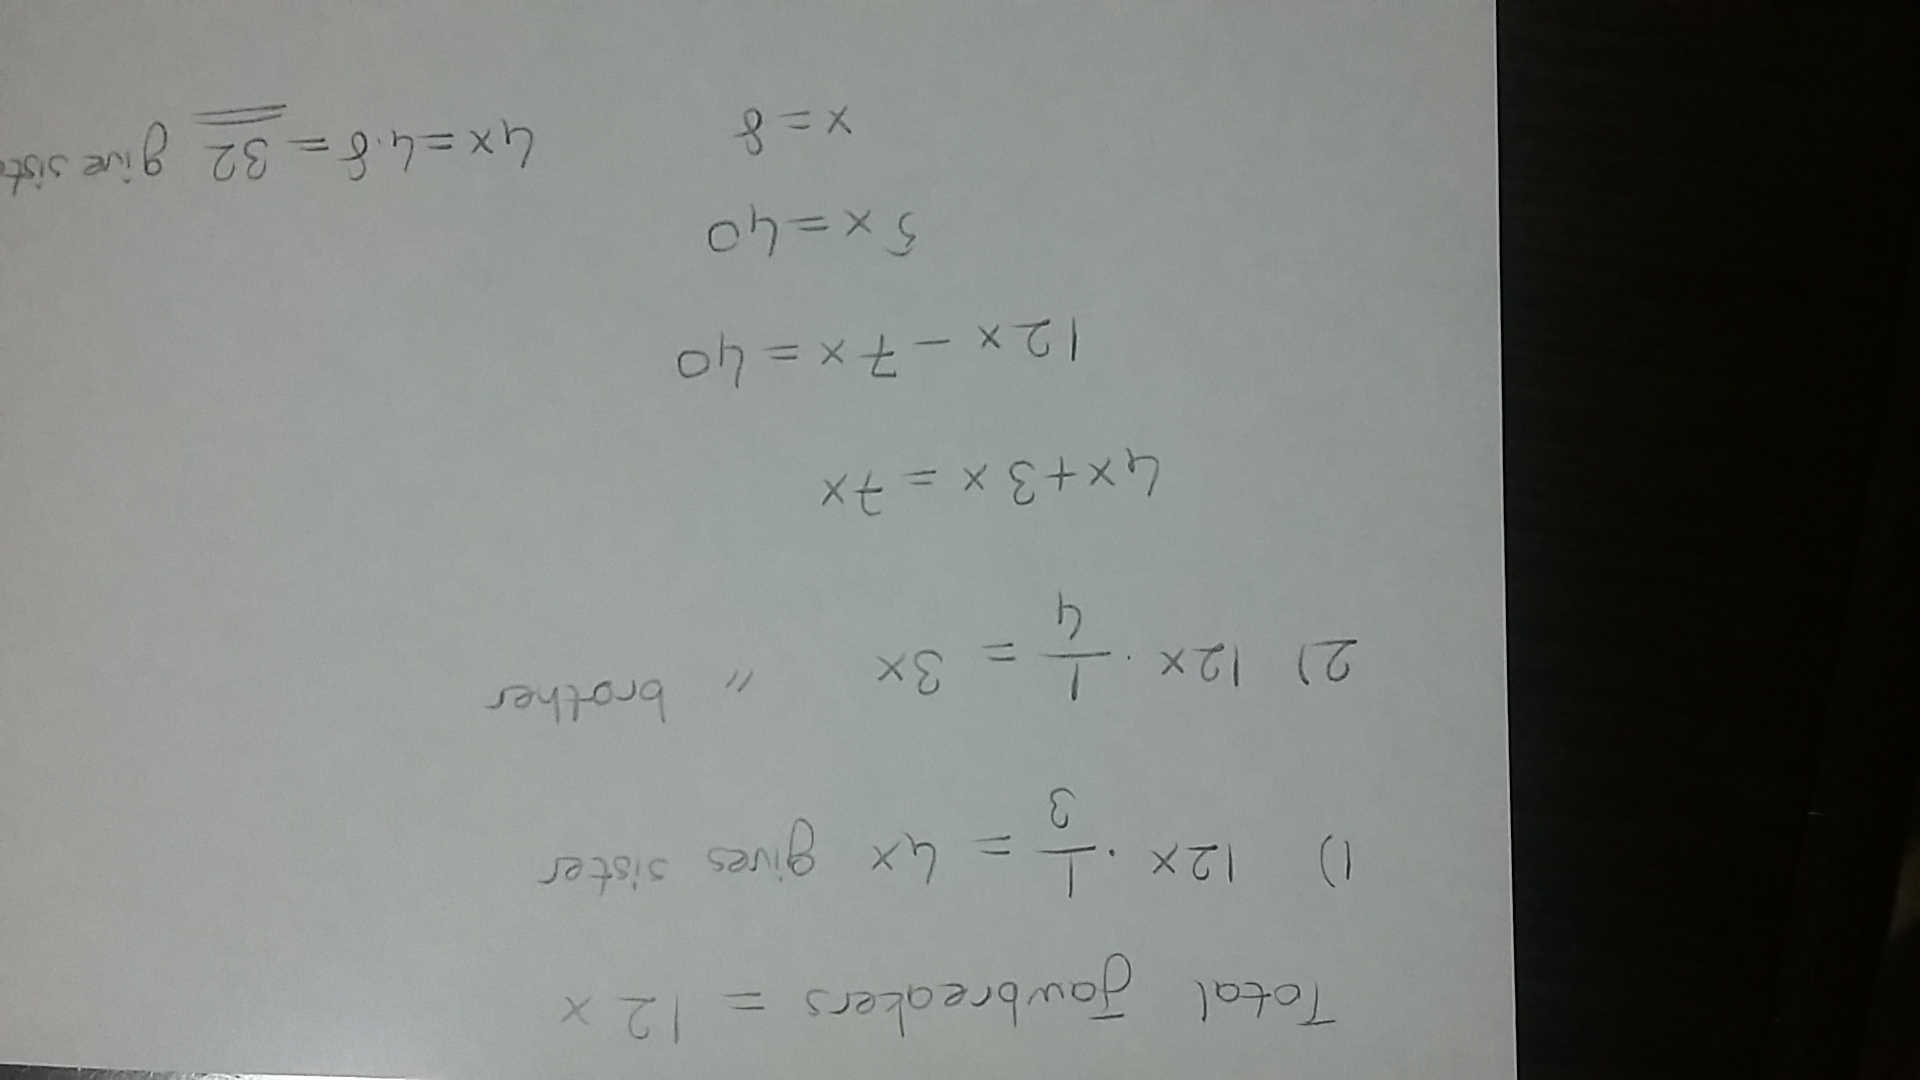 Total Jawbreakers = 12x
1) 12x · 1/3 = 4x gives sister
2) 12x · 1/4 = 3x " brother
4x+3x = 7x
12x - 7x = 40
5x = 40
x = 8 4x = 4·8 = 32 give